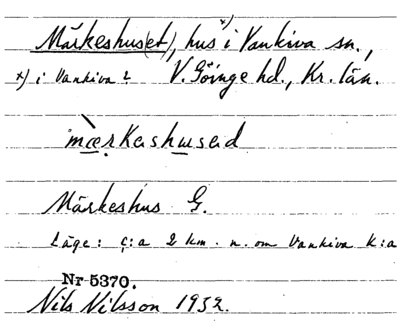 Märkeshus(et), hus x) i Vankiva sn.,
x) i Vankiva? V. Göinge hd., Kr. län.
mærkashusad
Märkeshus G.
Läge: c:a 2 km. n. om Vankiva K:a
Nr 5370.
Nils Nilsson 1932.